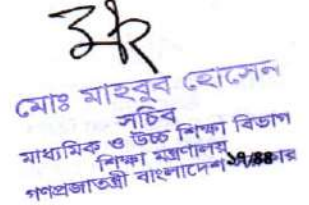 মোঃ মাহবুব হোসেন
সচিব
মাধ্যমিক ও উচ্চ শিক্ষা বিভাগ
শিক্ষা মন্ত্রণালয়
গণপ্রজাতন্ত্রী বাংলাদেশ